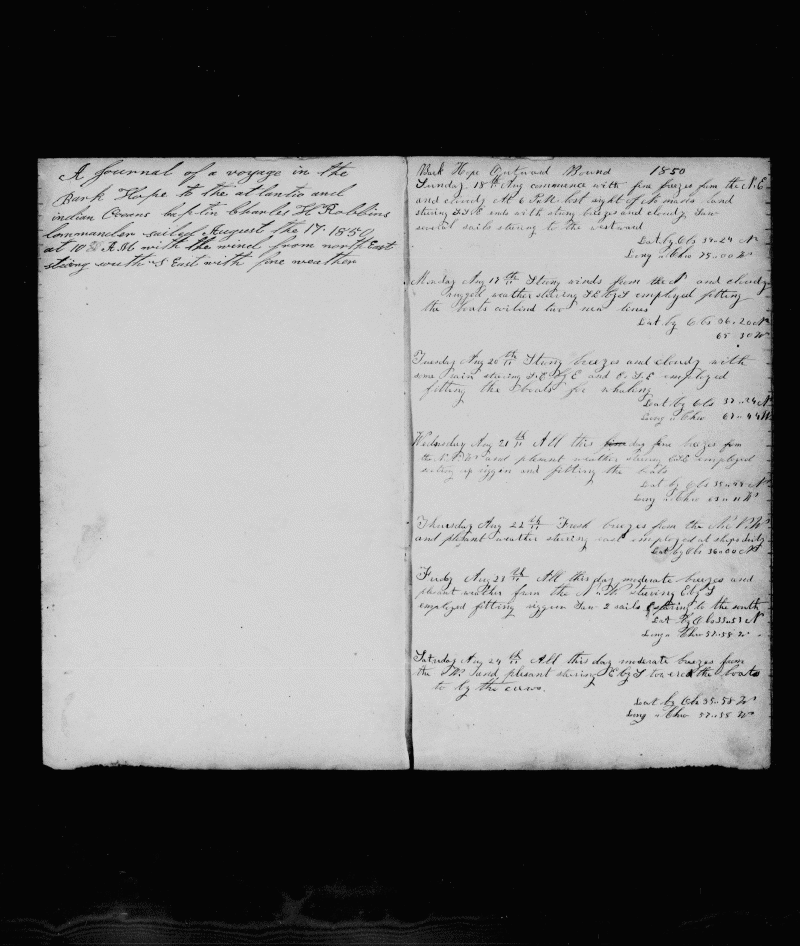 A Journal of a voyage in the
Bark Hope to the atlantic and
indian Oceans captin Charles H Robbins
Commander sailed August the 17 1850
at 10 A.M with the wind from north East
steing south S East with fine weather
Bark Hope Outward Bound 1850
Sunday 18th Aug commence with fine breezes from the N.E
and cloudy At 6 P.M lost sight of land
stering S.S.E ends with strong breezes and cloudy Saw
several sails stering to the westward
Lat by Obs 39-24 N
Long " Chro 75-00 W
Monday Aug 19th Strong winds from the N and cloudy
rugged weather stering S.E by S employed fitting
the boats two new lines
Lat by Obs 36-20 N
65-30 W
Tuesday Aug 20th Strong breezes and cloudy with
some rain stering S.E by E and E.S.E employed
fitting the Boats for whaling
Lat by Obs 37-24 N
Long " Chro 67-44 W
Wednesday Aug 21 All this day fine breezes from
the N.N.W and plesent weather stering ESE employed
seting up riggin and fitting the boats
Lat by Obs N
Long " Chro 63-11 W
Thursday Aug 22th Fresh breezes from the
and plesant weather stering east employed at ships duty
Lat by Obs 36-00 N
Friday Aug 23th All this day moderate breezes and
plesant weather from the N W stering E by S
employed fitting riggin Saw 2 sails stering to the south
Lat By Obs N
Long " Chro W
Saturday Aug 24th All this day moderate breezes from
the W and plesant stering E by S lowered the boats
to by the cows.
Lat by Obs 35-58
Long " Chro 57-55 W